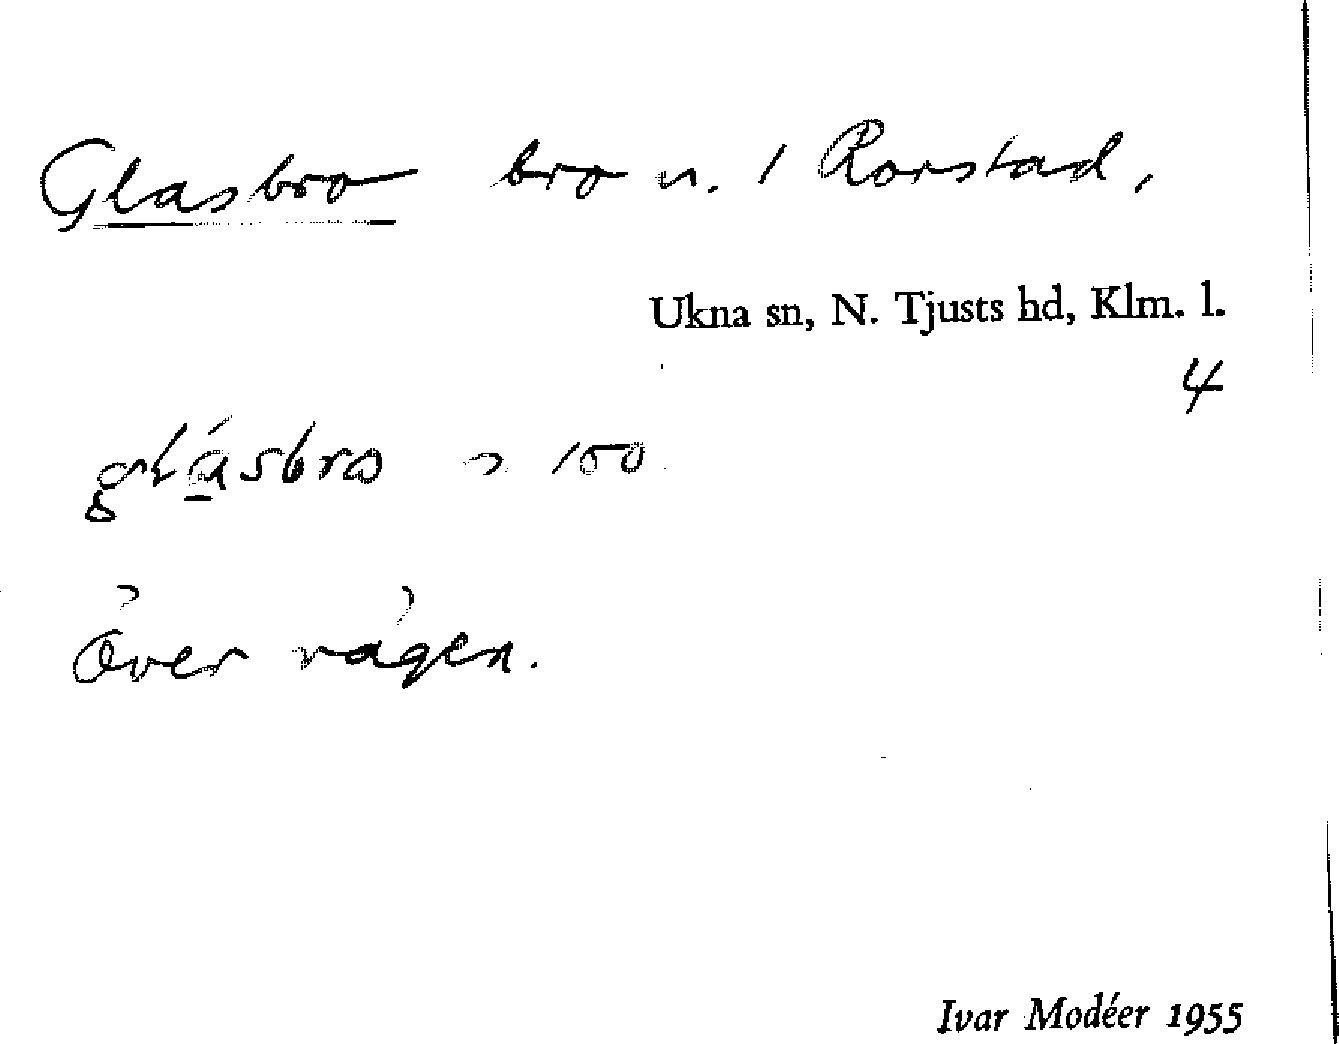 Glasbro bro n. / Rorstad,
Ukna sn, N. Tjusts hd, Klm. l.
4
glásbro 150
över vägen.
Ivar Modéer 1955